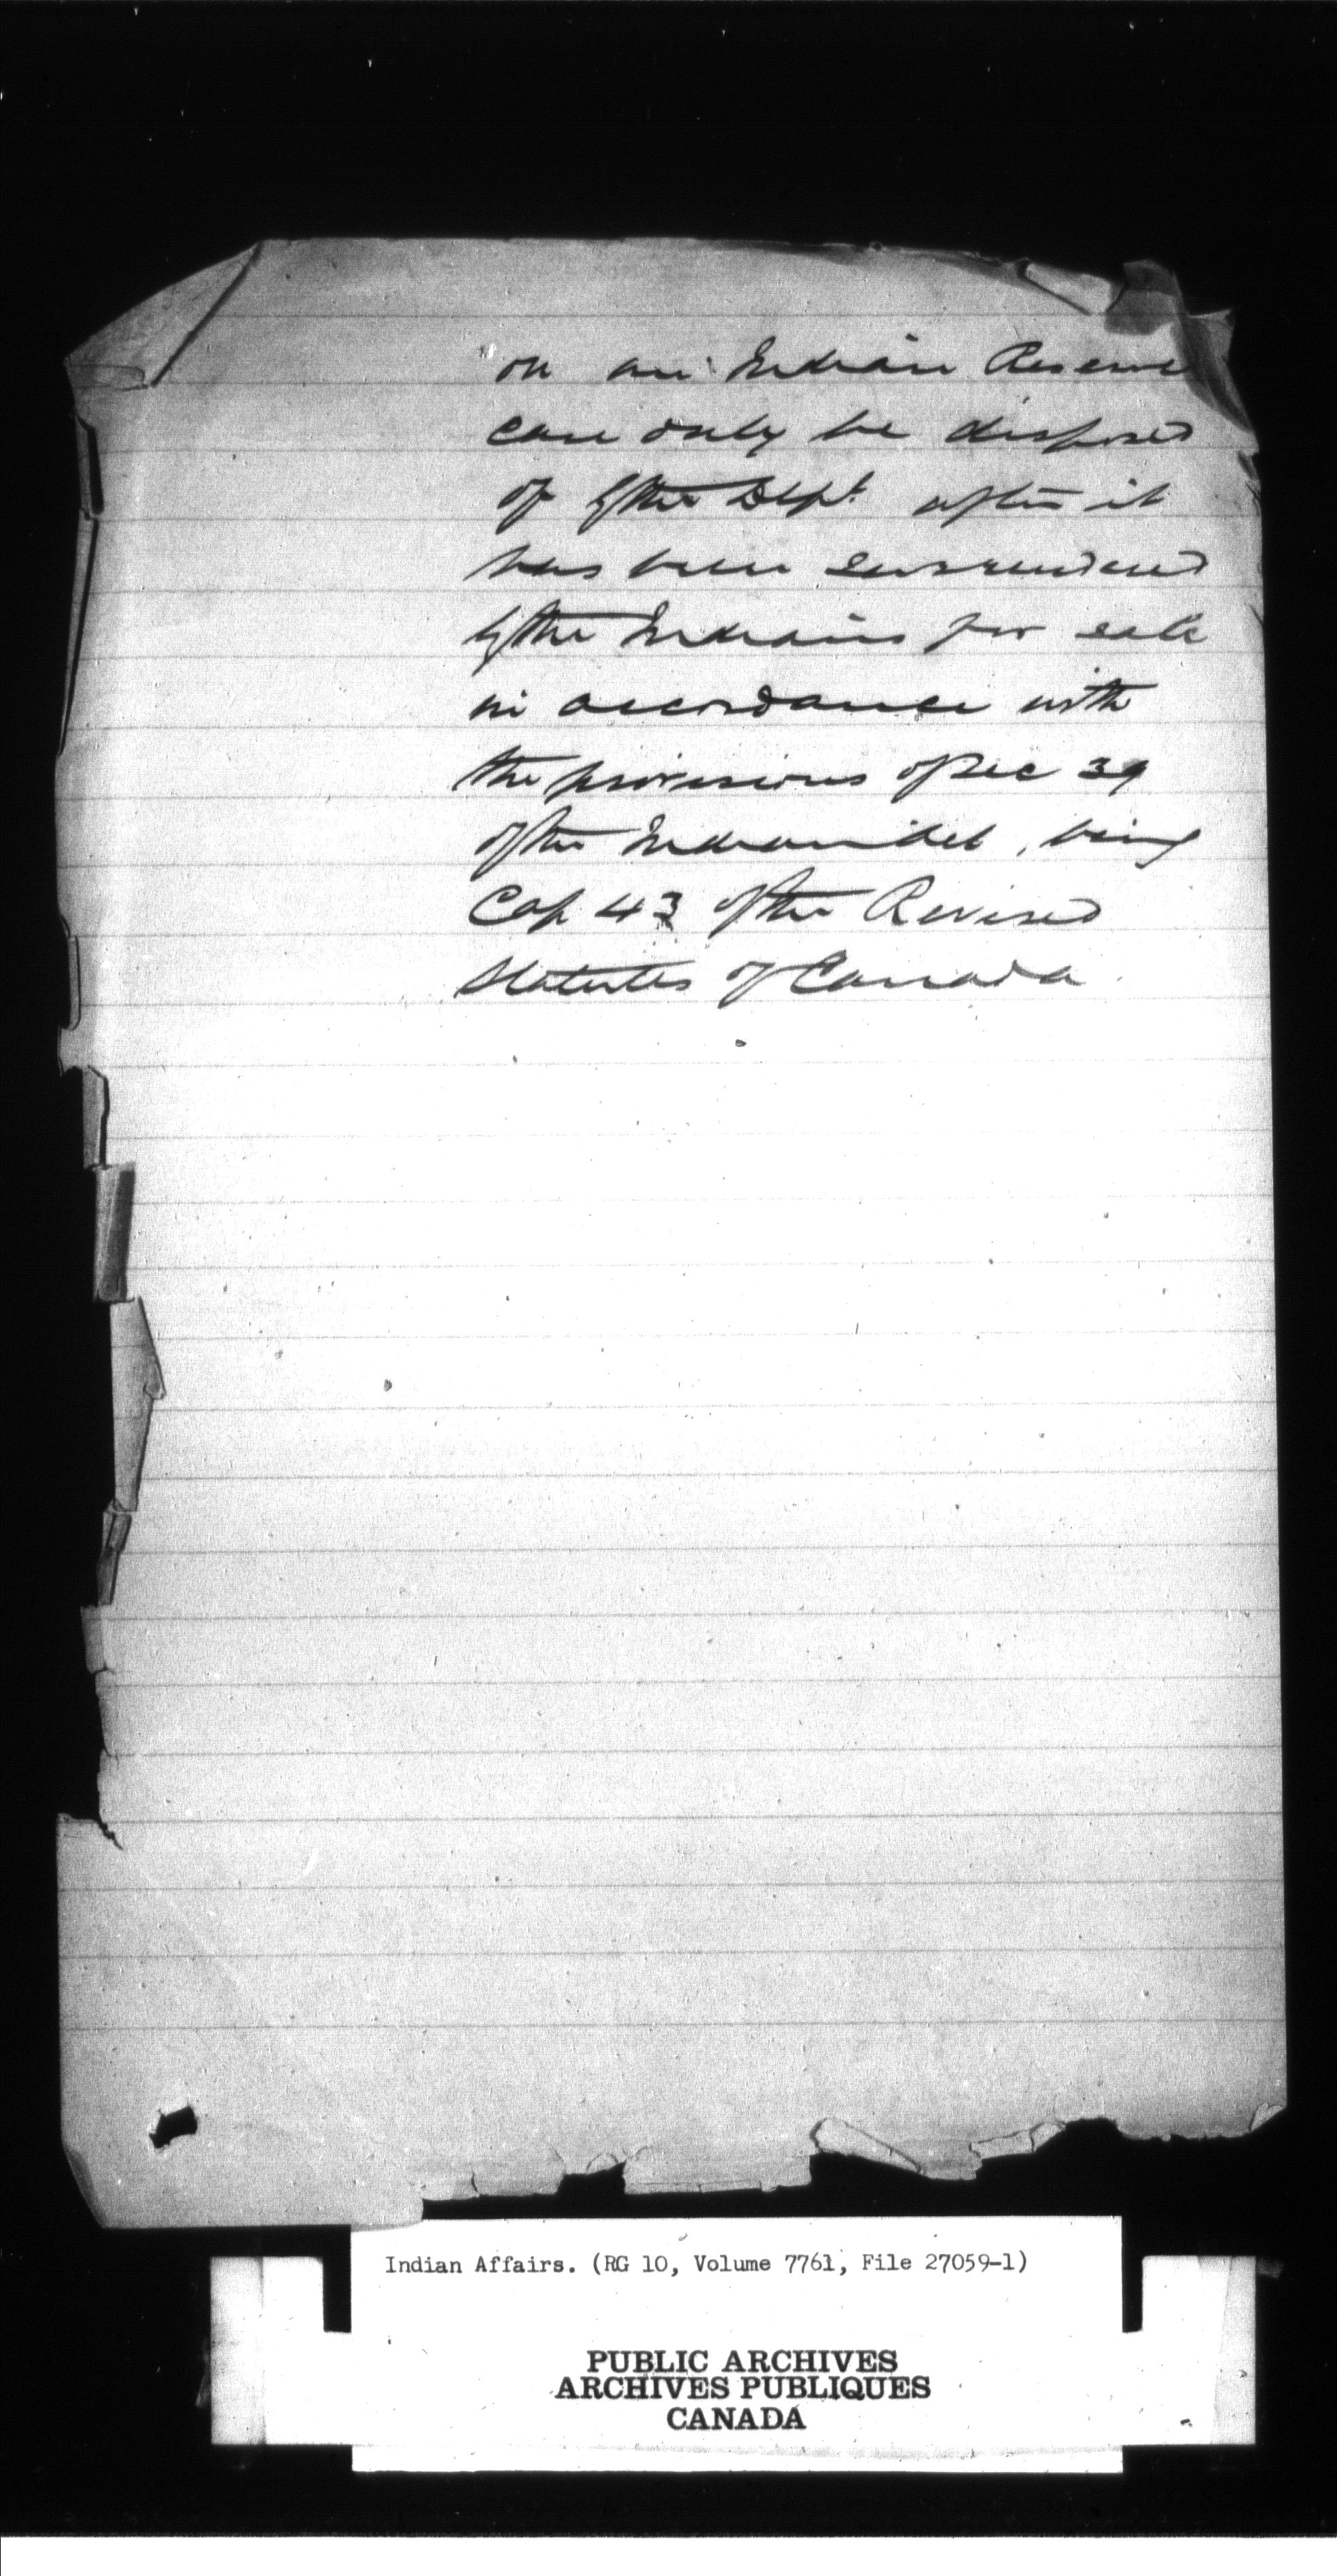 on an Indian Reserve
can only be disposed
of by the Dept. after it
has been surrendered
by the Indians for sale
in accordance with
the provisions of Sec 39
of the Indian Act, being
Cap 43 of the Revised
Statutes of Canada.
Indian Affairs. (RG 10, Volume 7761, File 27059-1)
PUBLIC ARCHIVES
ARCHIVES PUBLIQUES
CANADA